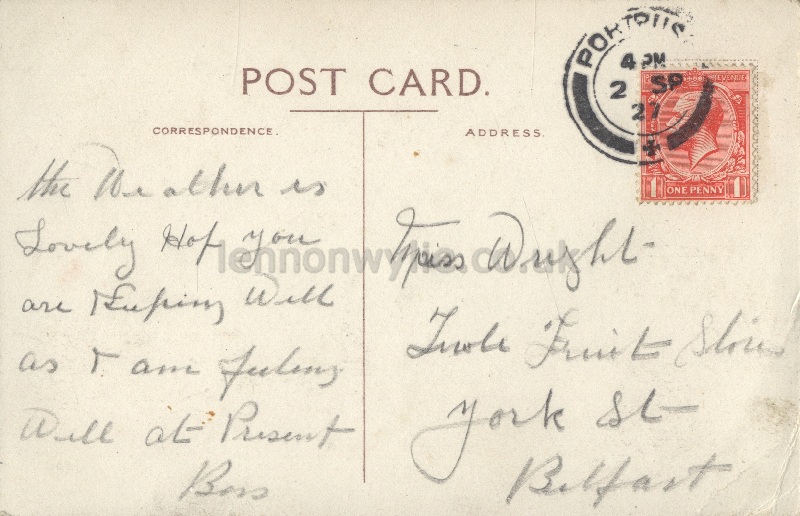 POST CARD.
CORRESPONDENCE.
ADDRESS.
PORTRUS
4 PM
2 SP
27
REVENUE
1 ONE PENNY 1
the Weather is
Lovely Hop you
are Keeping Well
as I am feeling
Well at Present
Miss Wright
Fruit Stores
York St
Belfast
lennonwylie.co.uk